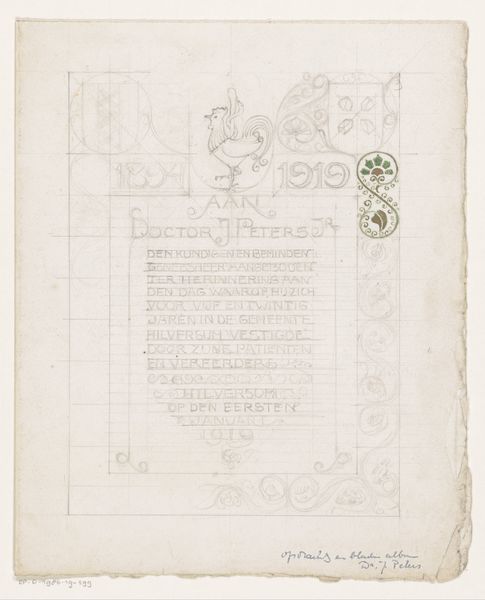 1894 1919
AAN
DOCTOR J. PETERS JR
DEN KUNDIGEN EN BEMINDEN
GENEESHEER AANGEBODEN
TER HERINNERING AAN
DEN DAG WAAROP HIJ ZICH
VOOR VIJF EN TWINTIG
JAREN IN DE GEMEENTE
HILVERSUM VESTIGDE
DOOR ZIJNE PATIENTEN
EN VEREERDERS
HILVERSUM
OP DEN EERSTEN
JANUARI
1919
opdracht en bladen album
Dr. J Peters